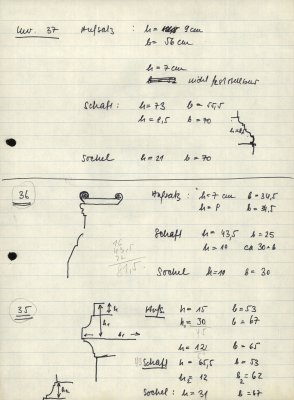 Inv. 37 Aufsatz : h = 9cm
b = 56cm
h = 7cm
nicht feststellbar
Schaft : h = 73 b = 55,5
h = 8,5 b = 70
Sockel h = 21 b = 70
36 Aufsatz : h = 7cm b = 34,5
h = 8 b = 34,5
Schaft h = 43,5 b = 25
h = 10 ca 30 = b
Sockel h = 10 b = 30
81,5
35 Aufs. h = 15 b = 53
h = 30 b = 67
h = 12 b = 65
Schaft h = 65,5 b = 53
h = 12 b = 62
Sockel : h = 31 b = 67